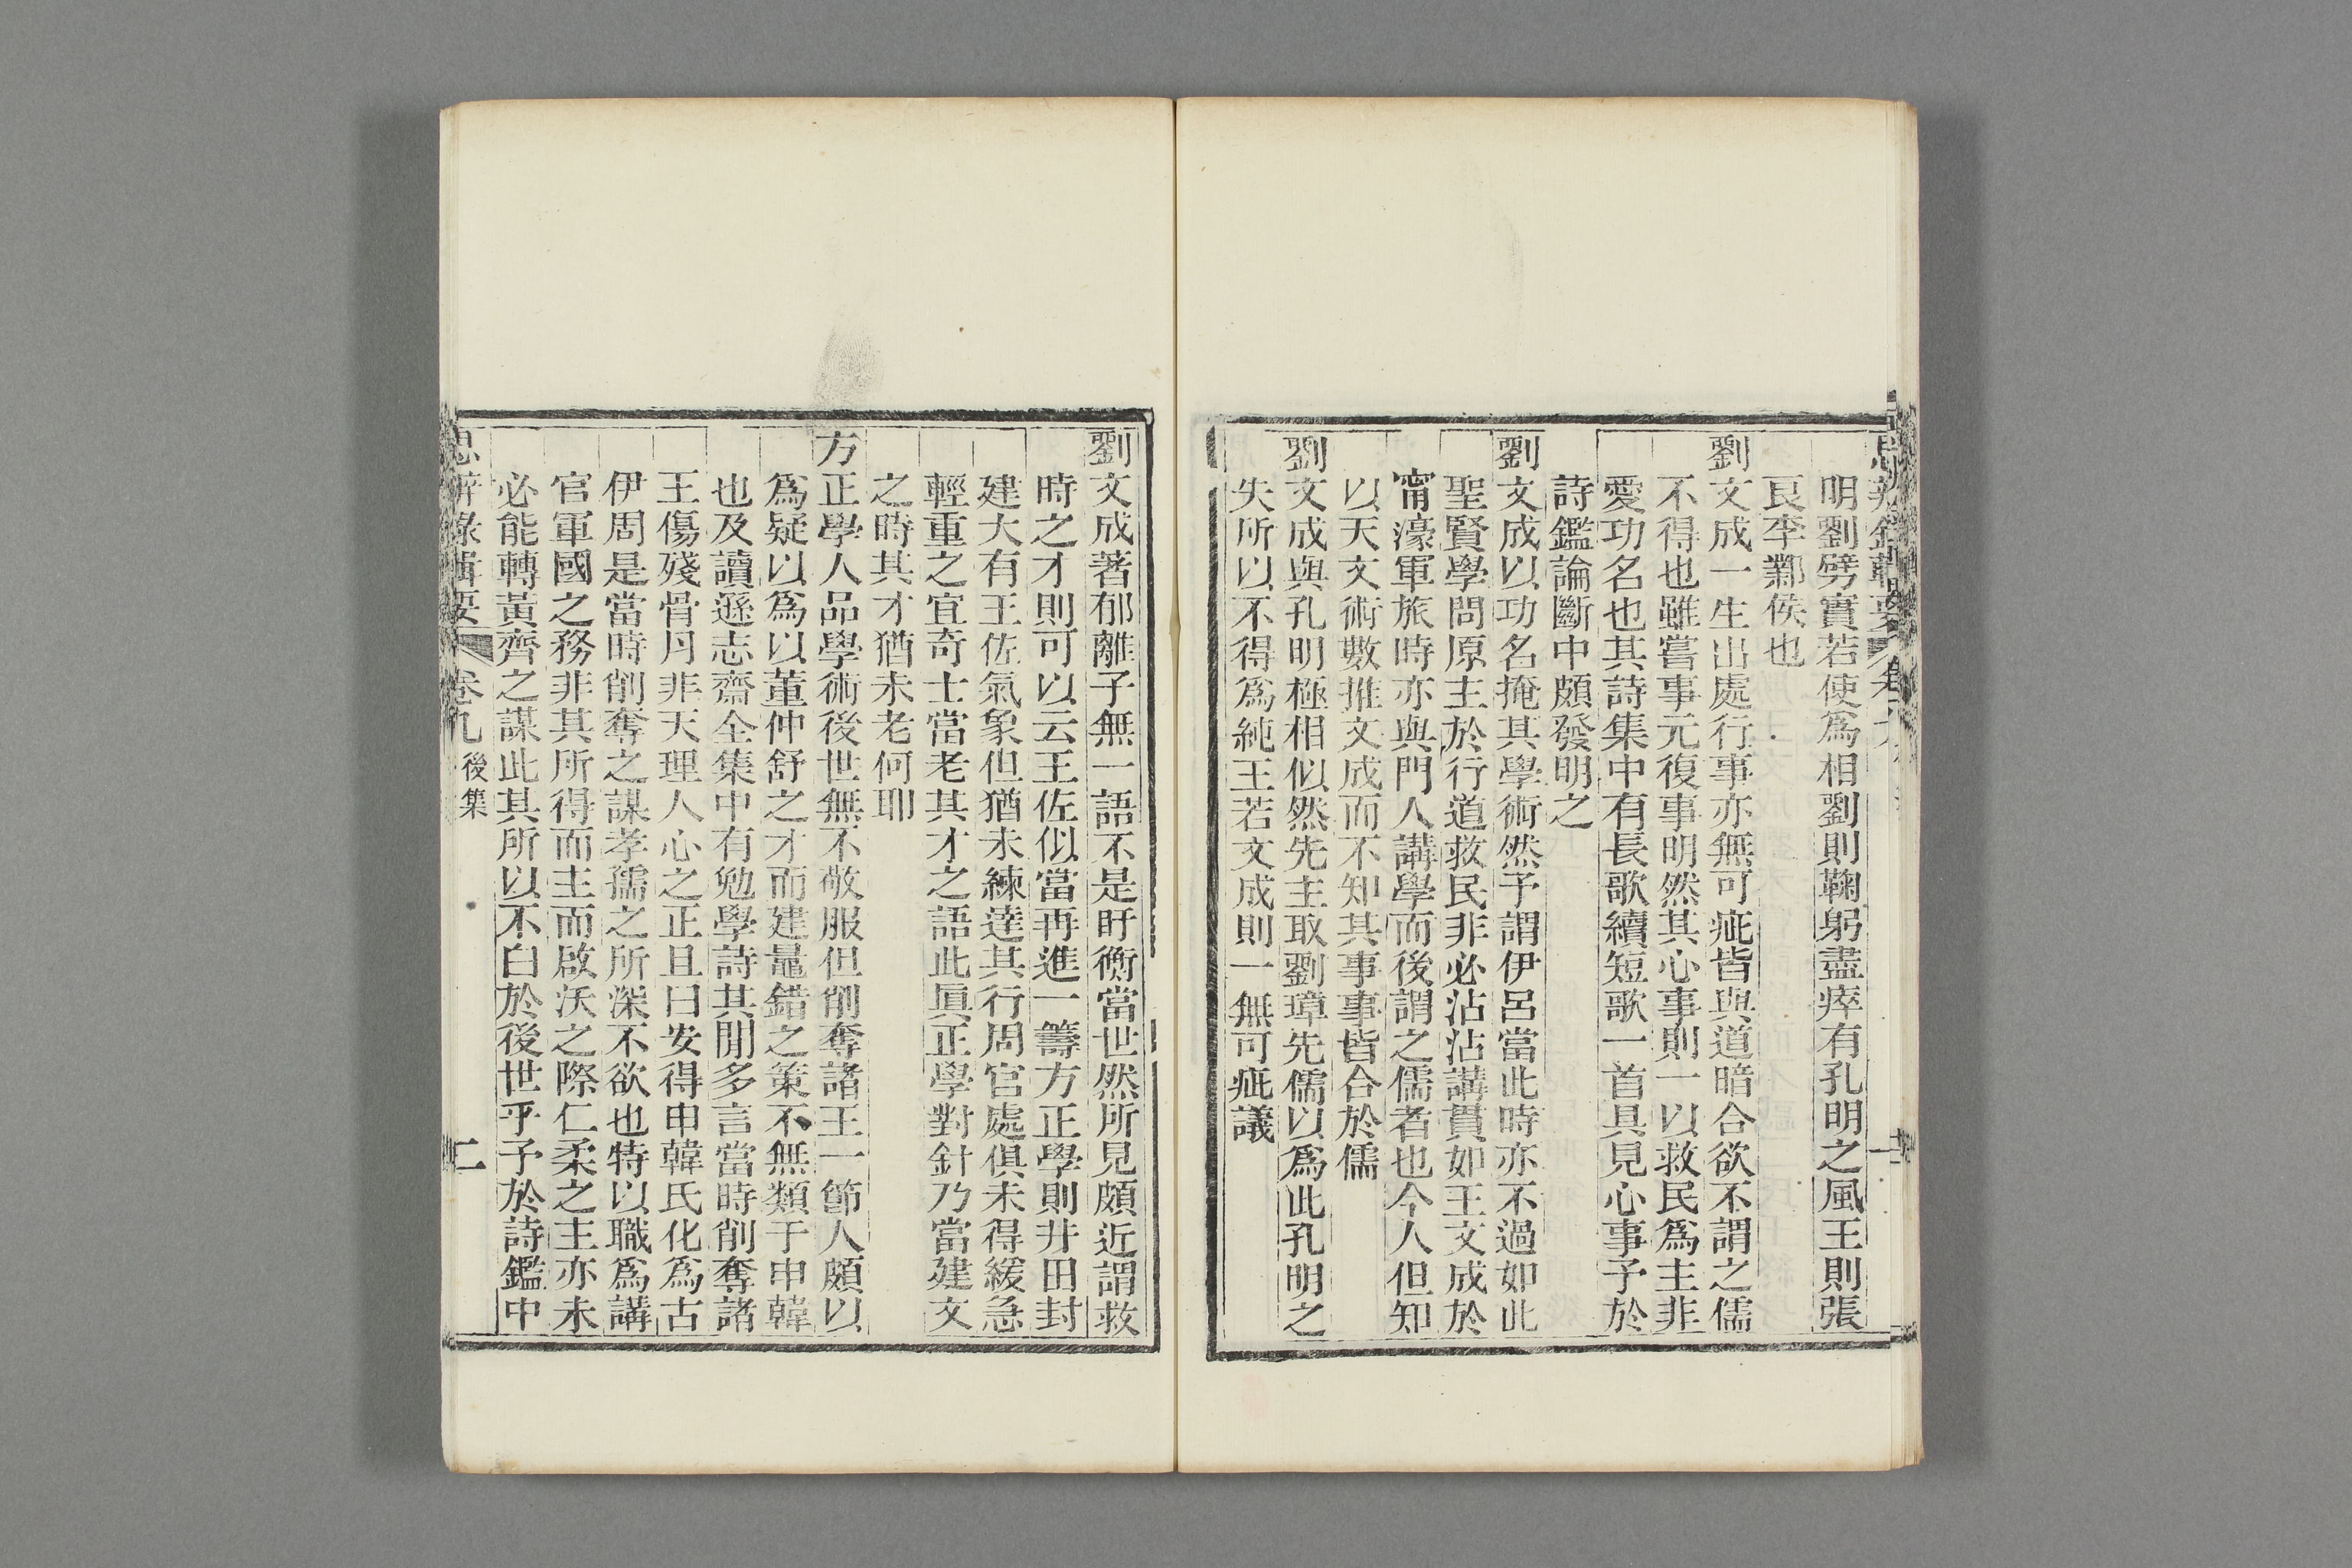 明劉劈實若使爲相劉則鞠躬盡瘁有孔明之風王則張
良李鄴侯也
劉文成一生出處行事亦無可疵皆與道暗合欲不謂之儒
不得也雖嘗事元復事明然其心事則一以救民爲主非
愛功名也其詩集中有長歌續短歌一首具見心事予於
詩鑑論斷中頗發明之
劉文成以功名掩其學術然予謂伊呂當此時亦不過如此
聖賢學問原主於行道救民非必沾沾講貫如王文成於
甯濠軍旅時亦與門人講學而後謂之儒者也今人但知
以天文術數推文成而不知其事事皆合於儒
劉文成與孔明極相似然先主取劉璋先儒以爲此孔明之
失所以不得爲純王若文成則一無可疵議
劉文成著郁離子無一語不是盱衡當世然所見頗近謂救
時之才則可以云王佐似當再進一籌方正學則井田封
建大有王佐氣象但猶未練達其行周官處俱未得緩急
輕重之宜奇士當老其才之語此眞正學對針乃當建文
之時其才猶未老何耶
方正學人品學術後世無不敬服但削奪諸王一節人頗以
爲疑以爲以董仲舒之才而建鼂錯之策不無類于申韓
也及讀遜志齋全集中有勉學詩其閒多言當時削奪諸
王傷殘骨月非天理人心之正且曰安得申韓氏化爲古
伊周是當時削奪之謀孝孺之所深不欲也特以職爲講
官軍國之務非其所得而主而啟沃之際仁柔之主亦未
必能轉黃齊之謀此其所以不白於後世乎予於詩鑑中
思辨錄輯要 卷九 後集 二